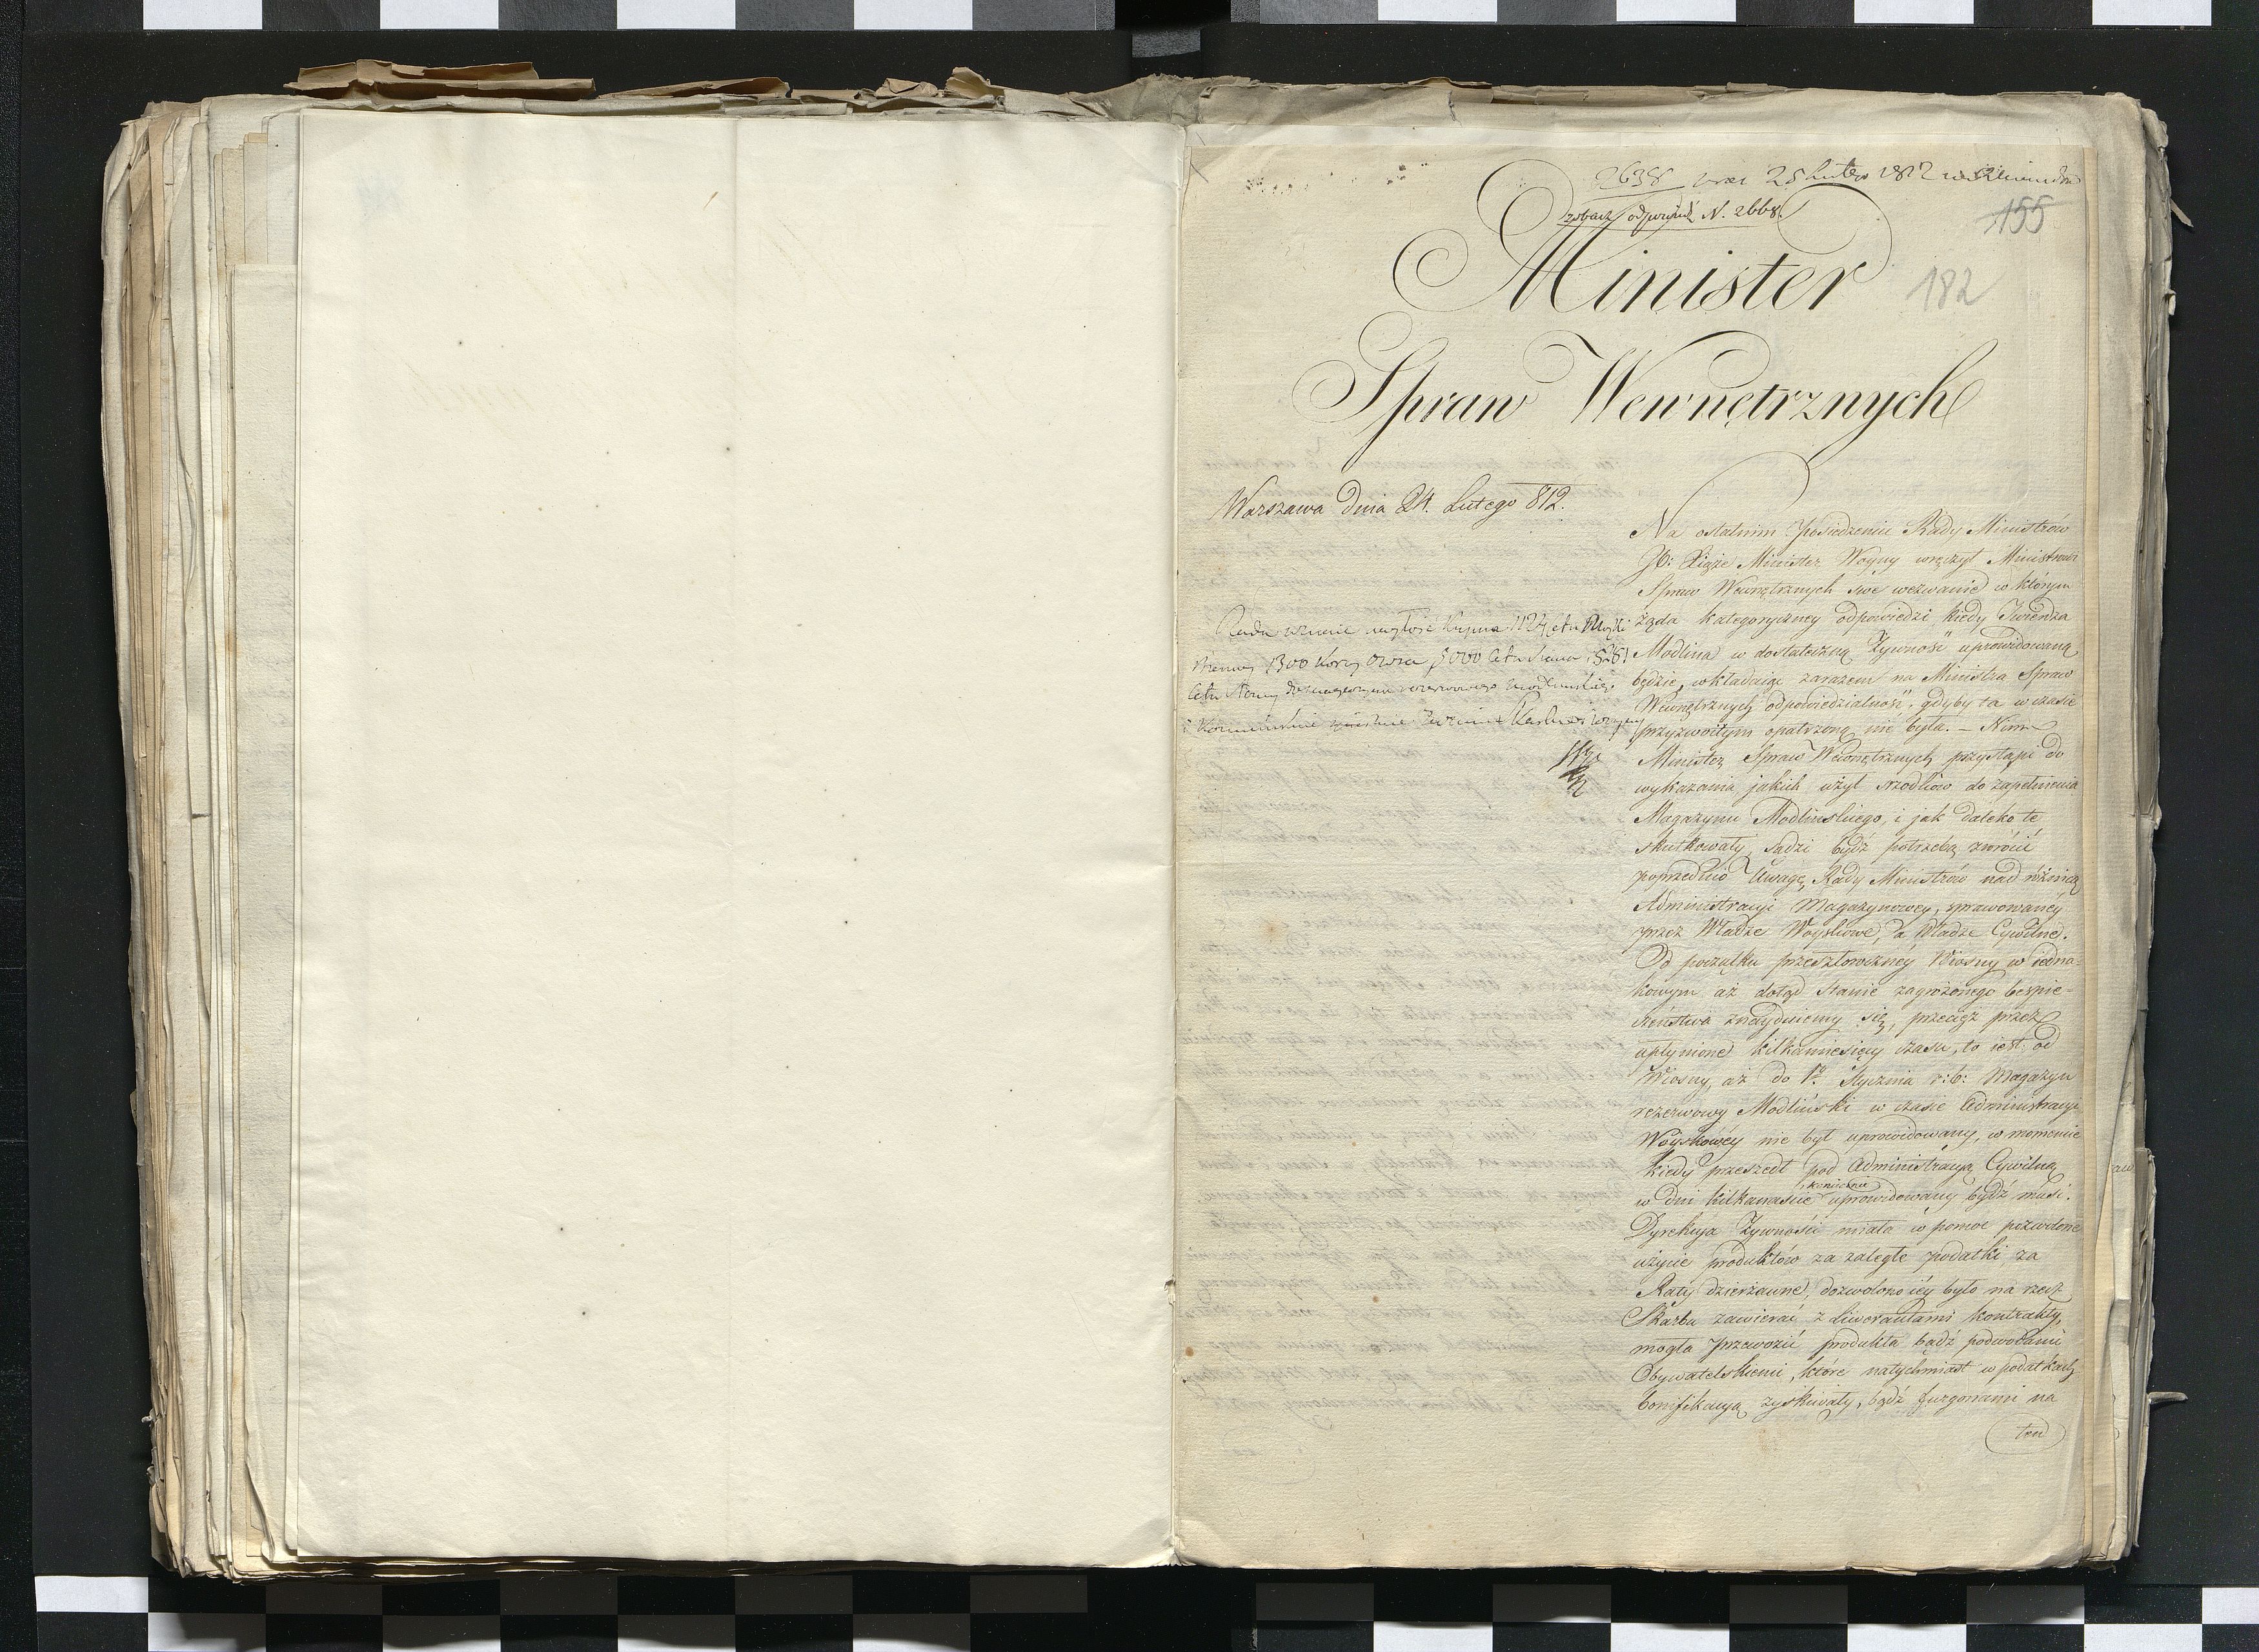 2638 25 Lutego 1812
zobacz odpowiedź N. 2668.
155
182
Minister
Spraw Wewnętrznych
Warszawa dnia 24. Lutego 812.
Rada uznaie nagłość kupna 1124 Cetn. Mąki
1300 korcy Owsa, 3000 Cetn. Siana, 5261
Cetn. Słomy
Na ostatnim Posiedzeniu Rady Ministrów
JO: Xiąże Minister Woyny wręczył Ministrowi
Spraw Wewnętrznych swe wezwanie w którym
żąda kategoryczney odpowiedzi kiedy Twierdza
Modlina w dostateczną Żywność uprowidowaną
będzie, wkładaiąc zarazem na Ministra Spraw
Wewnętrznych odpowiedzialność, gdyby ta w czasie
przyzwoitym opatrzoną nie była. – Nim
Minister Spraw Wewnętrznych przystąpi do
wykazania jakich użył srzodków do zapełnienia
Magazynu Modlińskiego, i jak daleko te
skutkowały, sądzi bydź potrzebą zwrócić
poprzednio Uwagę Rady Ministrów nad różnicą
Administracyi Magazynowey, sprawowaney
przez Władze Woyskowe, a Władze Cywilne.
Od początku przeszłoroczney Wiosny w iedna-
kowym aż dotąd stanie zagrożonego bespie-
czeństwa znayduiemy się, przeciąż przez
upłynione kilkamiesięcy czasu, to iest: od
Wiosny, aż do 1o. Stycznia r: b: Magazyn
rezerwowy Modliński w czasie Administracyi
Woyskowéy nie był uprowidowany, w momencie
kiedy przeszedł pod Administracyą Cywilną
w dni kilkanaście koniecznie uprowidowany bydź musi.
Dyrekcya Żywności miała w pomoc pozwolone
użycie produktów za zaległe podatki, za
Raty dzierżawne, dozwolono iéy było na rzecz
Skarbu zawierać z Liwerantami kontrakty,
mogła przewozić produkta bądź podwodami
Obywatelskiemi, które natychmiast w podatkach
bonifikacyą zyskiwały, bądź furgonami na
ten